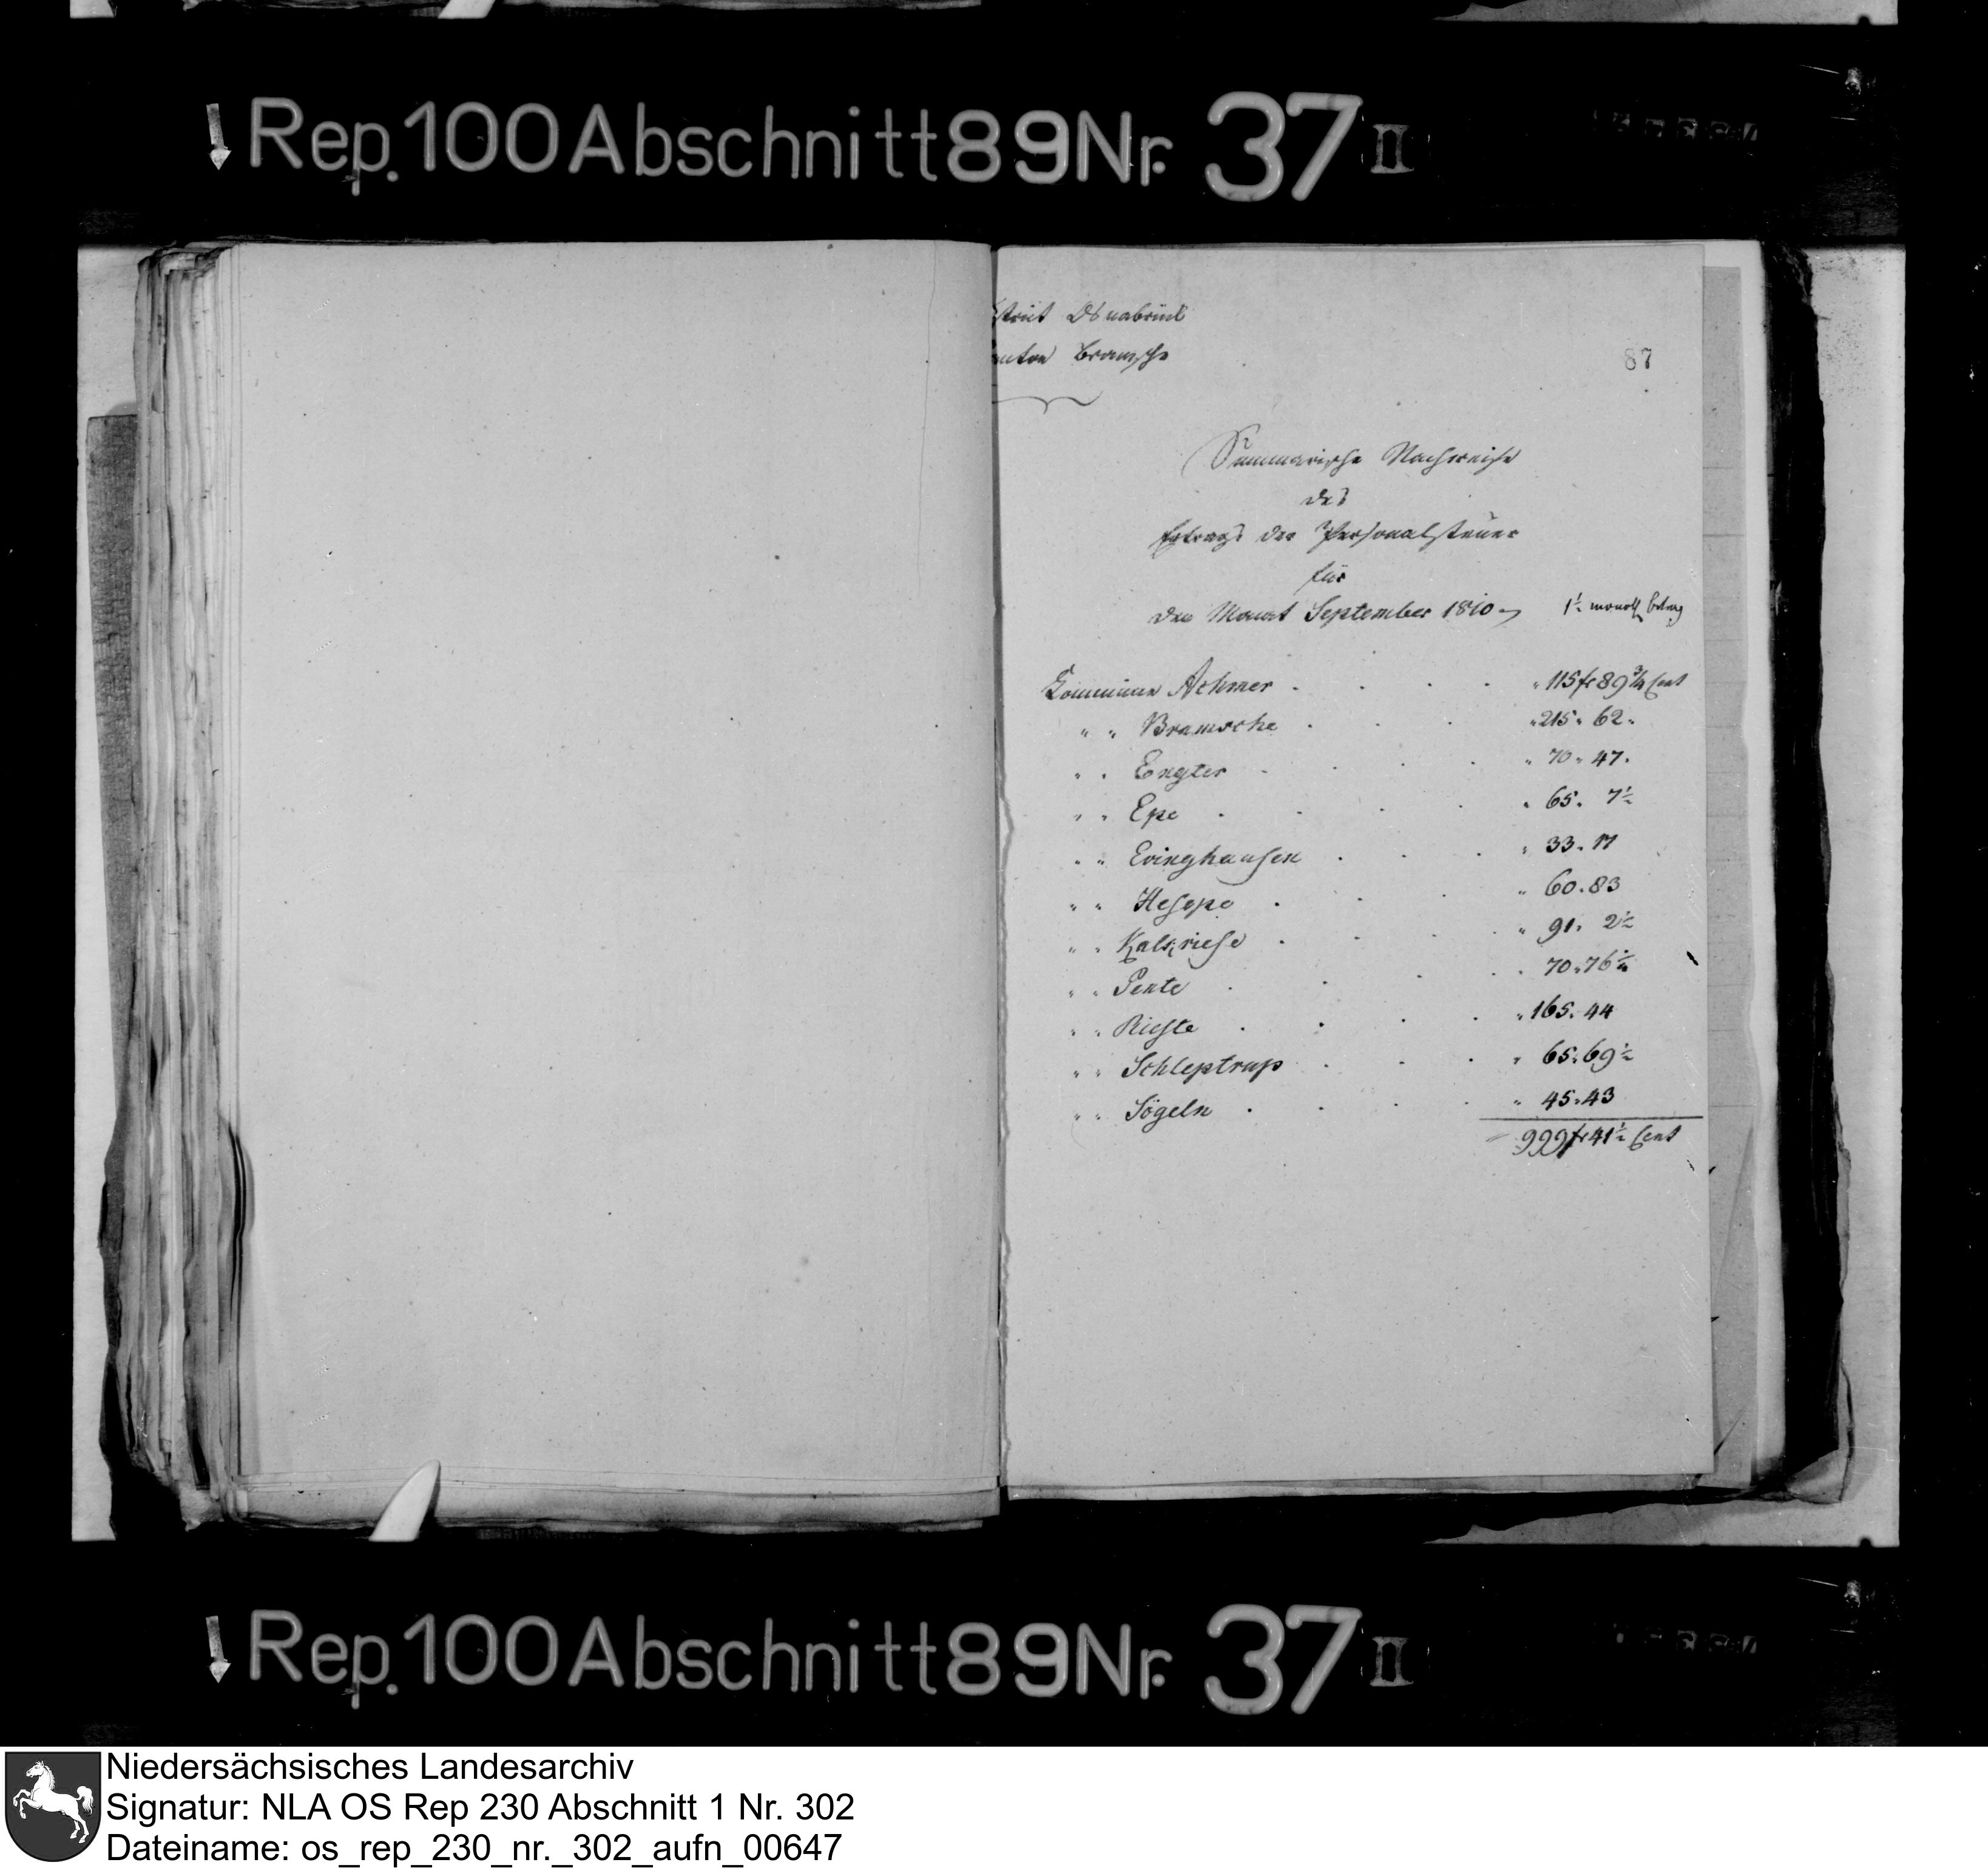 Rep. 100 Abschnitt 89 Nr. 37 II
strict Osnabrück
anton Bramsche
87
Summarische Nachweise
des
Ertrags der Personalsteuer
für
den Monat September 1810
1½ monatl Betrag
Commune Achmer . . . . " 115 fr 89¾ Cent
" " Bramsche . . . " 215 " 62 "
" " Engter . . . . " 70 " 47 "
" " Epe . . . . " 65 " 7½
" " Evinghausen . . . " 33 " 17
" " Hesepe . . . " 60 " 83
" " Kalkriese . . . . " 91 " 2½
" " Pente . . . . " 70 " 76¾
" " Rieste . . . . " 165 " 44
" " Schleptrup . . . " 65 " 69½
" " Sögeln . . . . " 45 " 43
999 fr 41½ Cent
Rep. 100 Abschnitt 89 Nr. 37 II
Niedersächsisches Landesarchiv
Signatur: NLA OS Rep 230 Abschnitt 1 Nr. 302
Dateiname: os_rep_230_nr._302_aufn_00647